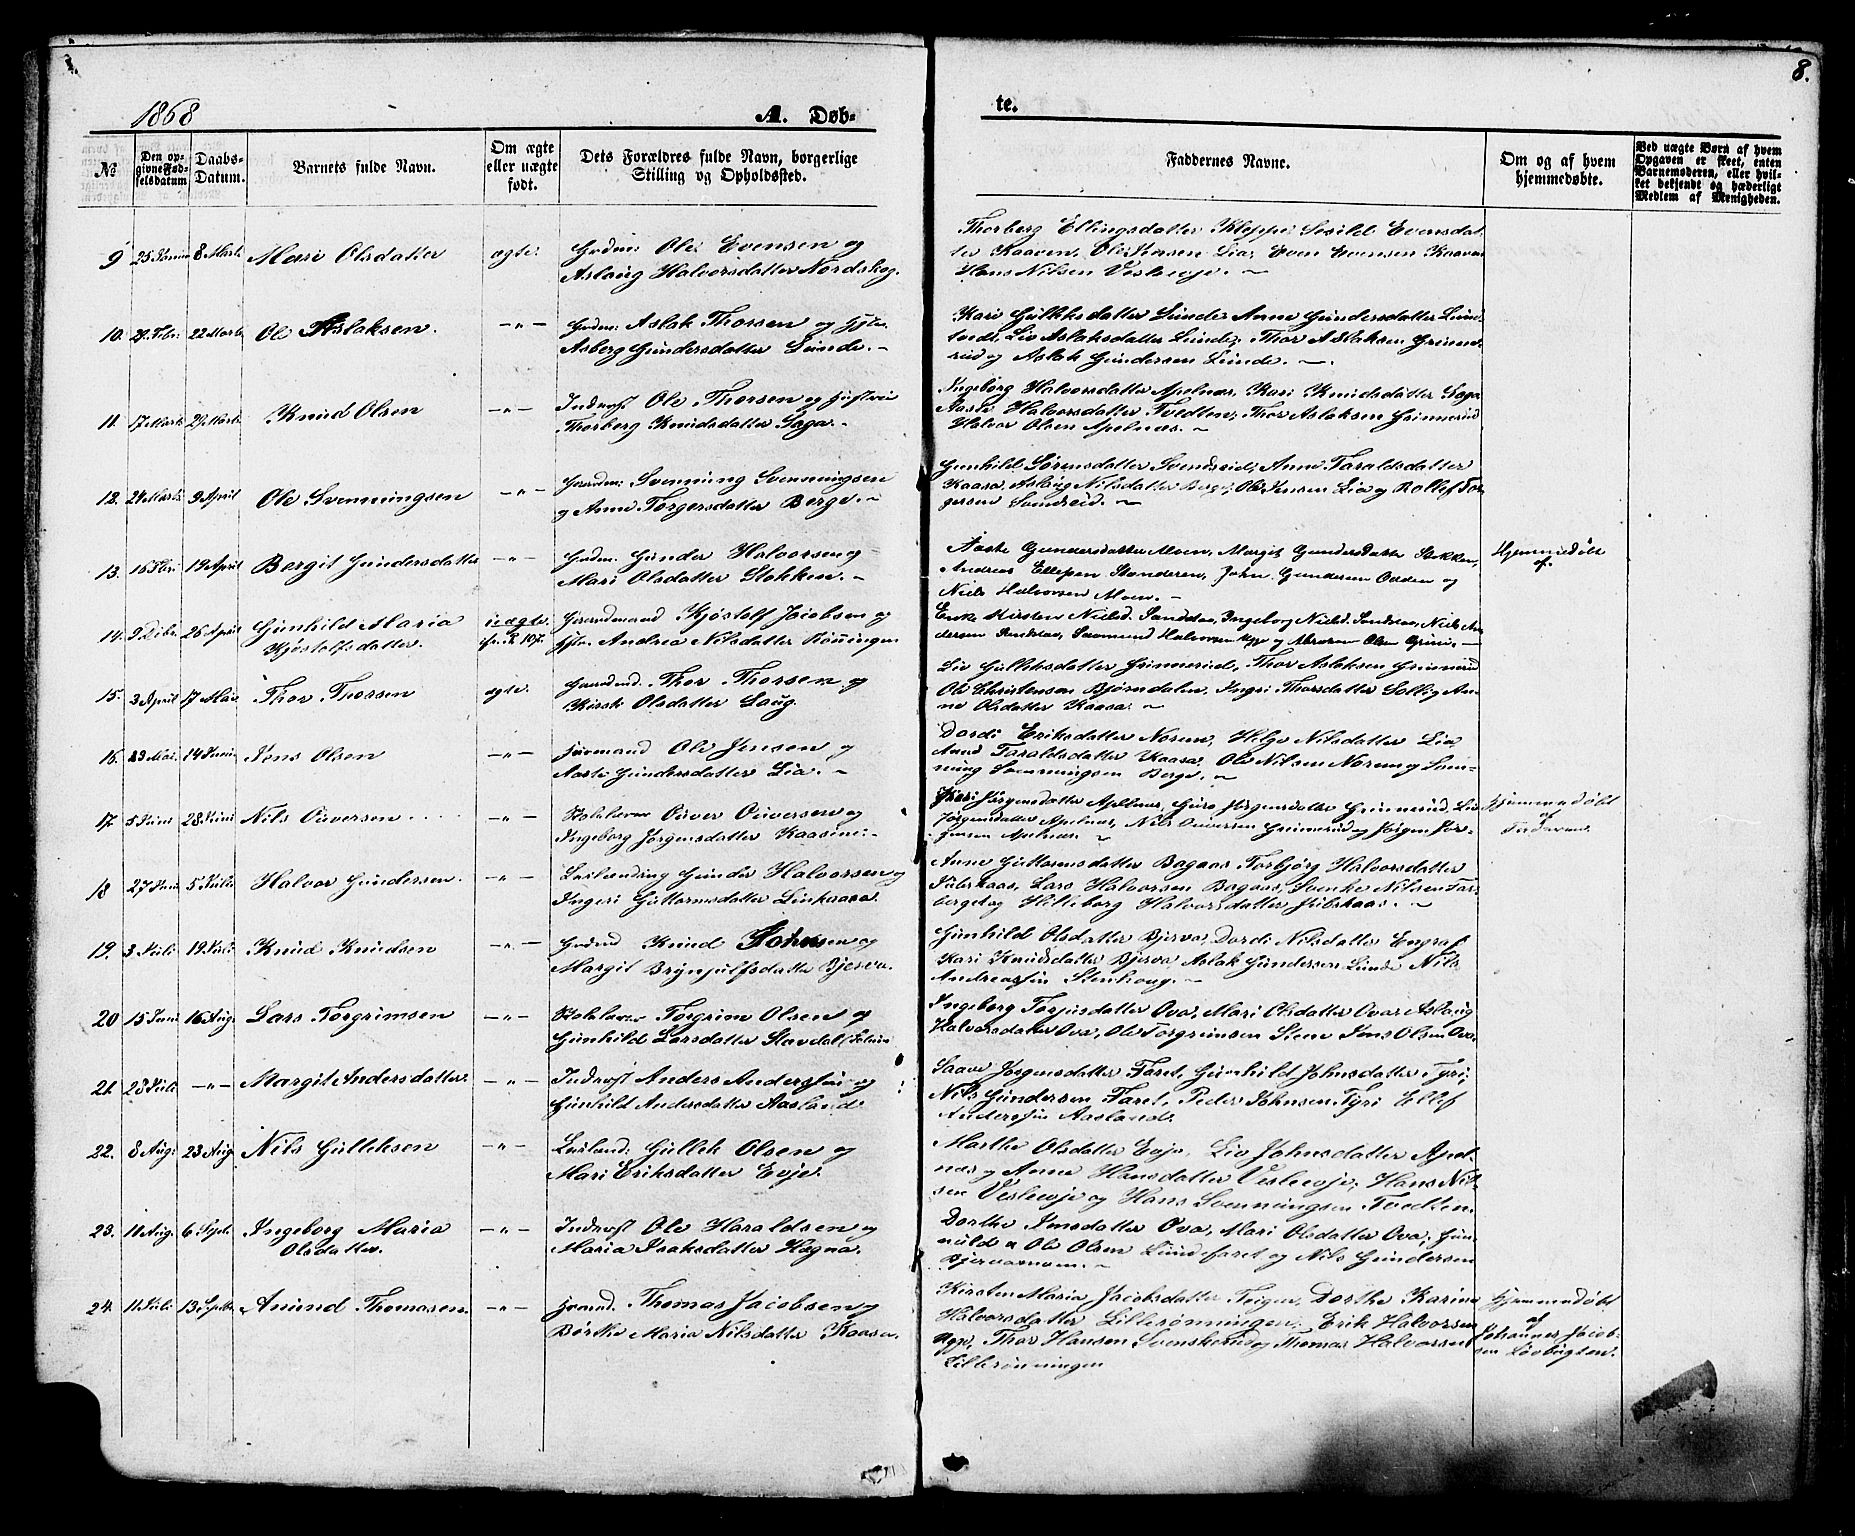 8.
1868
A. Døb-
te.
№
Den op-
givne Fød-
selsdatum
Daabs-
Datum.
Barnets fulde Navn.
Om ægte
eller uægte
født.
Dets Forældres fulde Navn, borgerlige
Stilling og Opholdssted.
Faddernes Navne.
Om og af hvem
hjemmedøbte.
Ved uægte Børn af hvem
Opgaven er skeet, enten
Barnemoderen, eller hvil-
ket bekjendt og hæderligt
Medlem af Menigheden.
9 25 8 Marts Mari Olsdatter ægte. Grdm: Ole Evensen og
Aslaug Halvorsdatter Nordskog.
Thorberg Ellingsdatter Kleppe, Sivild Evensdat-
ter Kaaven, Ole Jensen Lia, Even Evensen Kaaven
Hans Nilsen Vesleøje. —
10. 22 Marts Ole Aslaksen. —"— Grdm: Aslak Thorsen og
Asberg Gundersdatter Lunde. —
Kari Gulliksdatter Lunde, Anne Gundersdatter
Liv Aslaksdatter Lunde, Thor Aslaksen Grinne-
rud og Aslak Gundersen Lunde. —
11. 17 Marts 29 Marts Knud Olsen —"— Inderst Ole Thorsen og Hustru
Thorberg Knudsdatter Saga. -
Ingeborg Halvorsdatter Apelnæs, Kari Knudsdatter Saga
Aaste Halvorsdatter Tvedten, Thor Aslaksen Grinnerud
Halvor Olsen Apelnæs. ~
12. 21 Marts 9 April Ole Svenningsen —"— Svenning Svenningsen
og Anne Torgersdatter Berge. —
Gunhild Sørensdatter Svendseid, Anne Taraldsdatter
Kaasa, Aslaug Nilsdatter Berge, Ole Jensen Lia og Rollef Tor-
gersen Svendseid. ~
13. 16 Febr 19 April Bergit Gundersdatter —"— Grdm. Gunder Halvorsen og
Mari Olsdatter Stokken. —
Aaste Gundersdatter Moen, Margit Gundersdatter Stokken,
Andreas Ellefsen Stenderen, John Gundersen Odden og
Niels Halvorsen Moen. —
Hjemmedøbt
af.
14. 9 Debr. 26 April Gunhild Maria
Kjøstolfsdatter.
uægte.
Kjøstolf Jacobsen og
Andrea Nilsdatter Rønningen
Kirsten Nielsd. Sandaa, Ingeborg Nielsd. Sandaa, Niels An-
dersen Sandaa, Halvorsen og Olsen —
15. 3 April 17 Mai Thor Thorsen ægte. Thor Thorsen og
Kirsti Olsdatter Haug.
Liv Gulliksdatter Grinnerud, Thor Aslaksen Grinnerud
Ole Christensen Bjørndalen, Ingri Thorsdatter Solli, An-
ne Olsdatter Kaasa. ~
16. 23 Mai. 14 Juni Jens Olsen —"— Ole Jensen og
Aaste Gundersdatter Lia. ~
Dordi Eriksdatter Norem, Helge Nilsdatter Lia
Anne Taraldsdatter Kaasa, Ole Nilsen Norem og Sven-
ning Svenningsen Berge. ~
17. 5 Juni 28 Juni Nils Oliversen —"— Skolelærer Oliver Oliversen og
Ingeborg Jørgensdatter Kaasene. -
Kari Jørgensdatter Apelnæs, Guro Jørgensdatter Grinnerud, Liv
Jørgensdatter Apelnæs, Nils Oliversen Grinnerud og Jørgen Jør-
gensen Apelnæs. ~
Hjemmedøbt
af
18 27 Juni 5 Juli Halvor Gundersen. —"— Gunder Halvorsen og
Ingeri Guttormsdatter Linkaasa.
Anne Guttormsdatter Bagaas, Torbjørg Halvorsdatter
Lars Halvorsen Bagaas, Svenke Nilsen
og Hilleborg Halvorsdatter ~
19. 3 Juli 19 Juli Knud Knudsen —"— Knud Johnsen og
Margit Brynjulfsdatter Bjerva.
Gunhild Olsdatter Bjerva, Dordi Nilsdatter Engraf
Kari Knudsdatter Bjerva, Aslak Gundersen Lunde, Nils
Andreassen Stenhaug. ~
20 15 Juni 16 Aug. Lars Torgrimsen —"— Skolelærer Torgrim Olsen og
Gunhild Larsdatter Stavdal
Ingeborg Torjusdatter Ova, Mari Olsdatter Ova, Aslaug
Halvorsdatter Ova, Ole Torgrimsen Stene, Jens Olsen Ova.
21. 23 Juli —"— Margit Andersdatter. —"— Inderst Anders Anderssen og
Gunhild Andersdatter Aasland.
Jørgensdatter Faret, Gunhild Johnsdatter Tyri,
Nils Gundersen Faret, Peder Johnsen Tyri, Ellef
Anderssen Aasland.
22. 8 Aug: 23 Aug. Nils Gulleksen —"— Gullik Olsen og
Mari Eriksdatter Evje.
Marthe Olsdatter Evje, Liv Johnsdatter Apel-
næs og Anne Hansdatter Vesleøje, Hans Nil-
sen Vesleøje og Hans Svenningsen Tvedten.
23. 11 Aug. 6 Sept. Ingeborg Maria
Olsdatter.
—"— Inderst Ole Haraldsen og
Maria Isaksdatter Hegna.
Dorthe Jensdatter Ova, Mari Olsdatter Ova, Gun-
nuld Ole Olsen Lundefaret og Nils Gundersen
24. 11 Juli 13 Septbr. Amund Thomasen. —"— Thomas Jacobsen og
Børthe Maria Nilsdatter Kaasa.
Kirsten Maria Jacobsdatter Teigen, Dorthe Karine
Halvorsdatter Lillerønningen, Erik Halvorsen
Thor Hansen Svenskerud og Thomas Halvorsen
Lillerønningen
Hjemmedøbt
af
Johannes Jacob-
sen